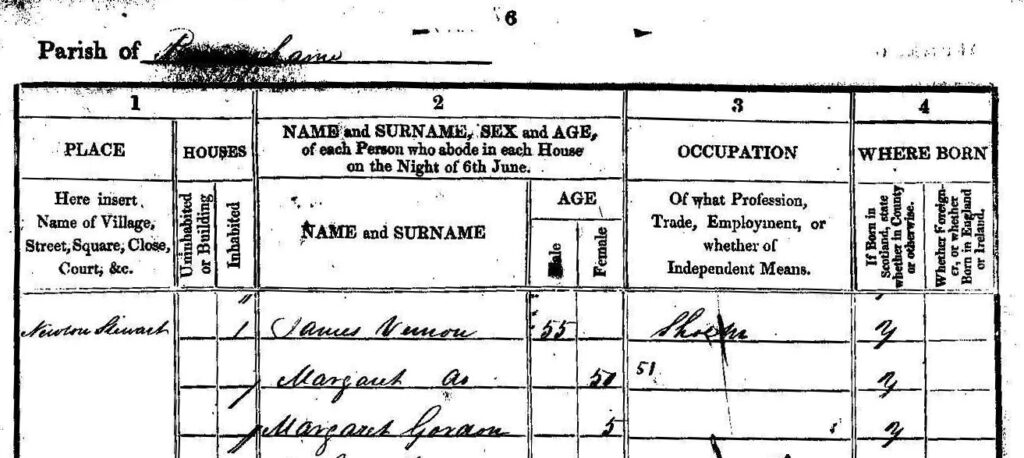 6
Parish of
1 2 3 4
PLACE
HOUSES
NAME and SURNAME, SEX and AGE,
of each Person who abode in each House
on the Night of 6th June.
OCCUPATION
WHERE BORN
Here insert
Name of Village,
Street, Square, Close,
Court, &c.
Uninhabited
or Building
Inhabited
NAME and SURNAME
AGE
Male
Female
Of what Profession,
Trade, Employment, or
whether of
Independent Means.
If Born in
Scotland, state
whether in County
or otherwise.
Whether Foreign-
er, or whether
Born in England
or Ireland.
Newton Stewart 1 James Vernon 55 y
Margaret do 50 51 y
Margaret Gordon 5 y